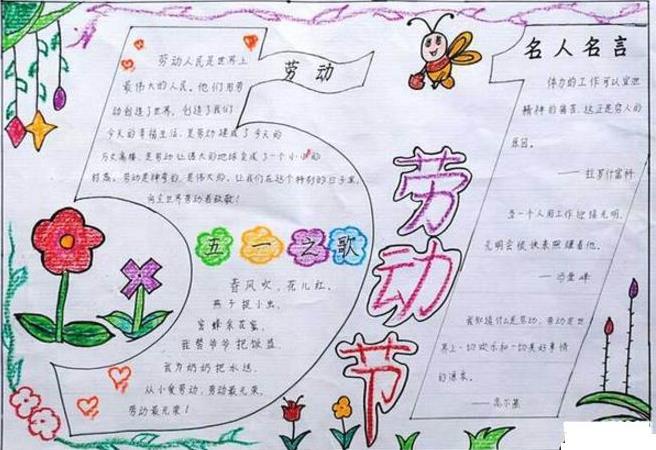 劳动
劳动人民是世界上
最伟大的人民。他们用劳
动创造了世界，创造了我们
今天的幸福生活，是劳动建成了今天的
万丈高楼，是劳动让偌大的地球变成了一个小小的
村落，劳动是神圣的，是伟大的，让我们在这个特别的日子里，
向全世界劳动者致敬！
五一之歌
春风吹，花儿红，
燕子捉小虫，
蜜蜂采花蜜，
我帮爷爷把饭盛，
我为奶奶把水送，
从小爱劳动，劳动最光荣，
劳动最光荣！
劳动节
名人名言
体力的工作可以宜泄
精神的痛苦，这正是穷人的
乐园。
——拉罗什富科
当一个人用工作迎接光明，
光明会很快来照耀着他。
——冯学峰
我知道什么是劳动，劳动是世
界上一切欢乐和一切美好事情
的源泉。
——高尔基